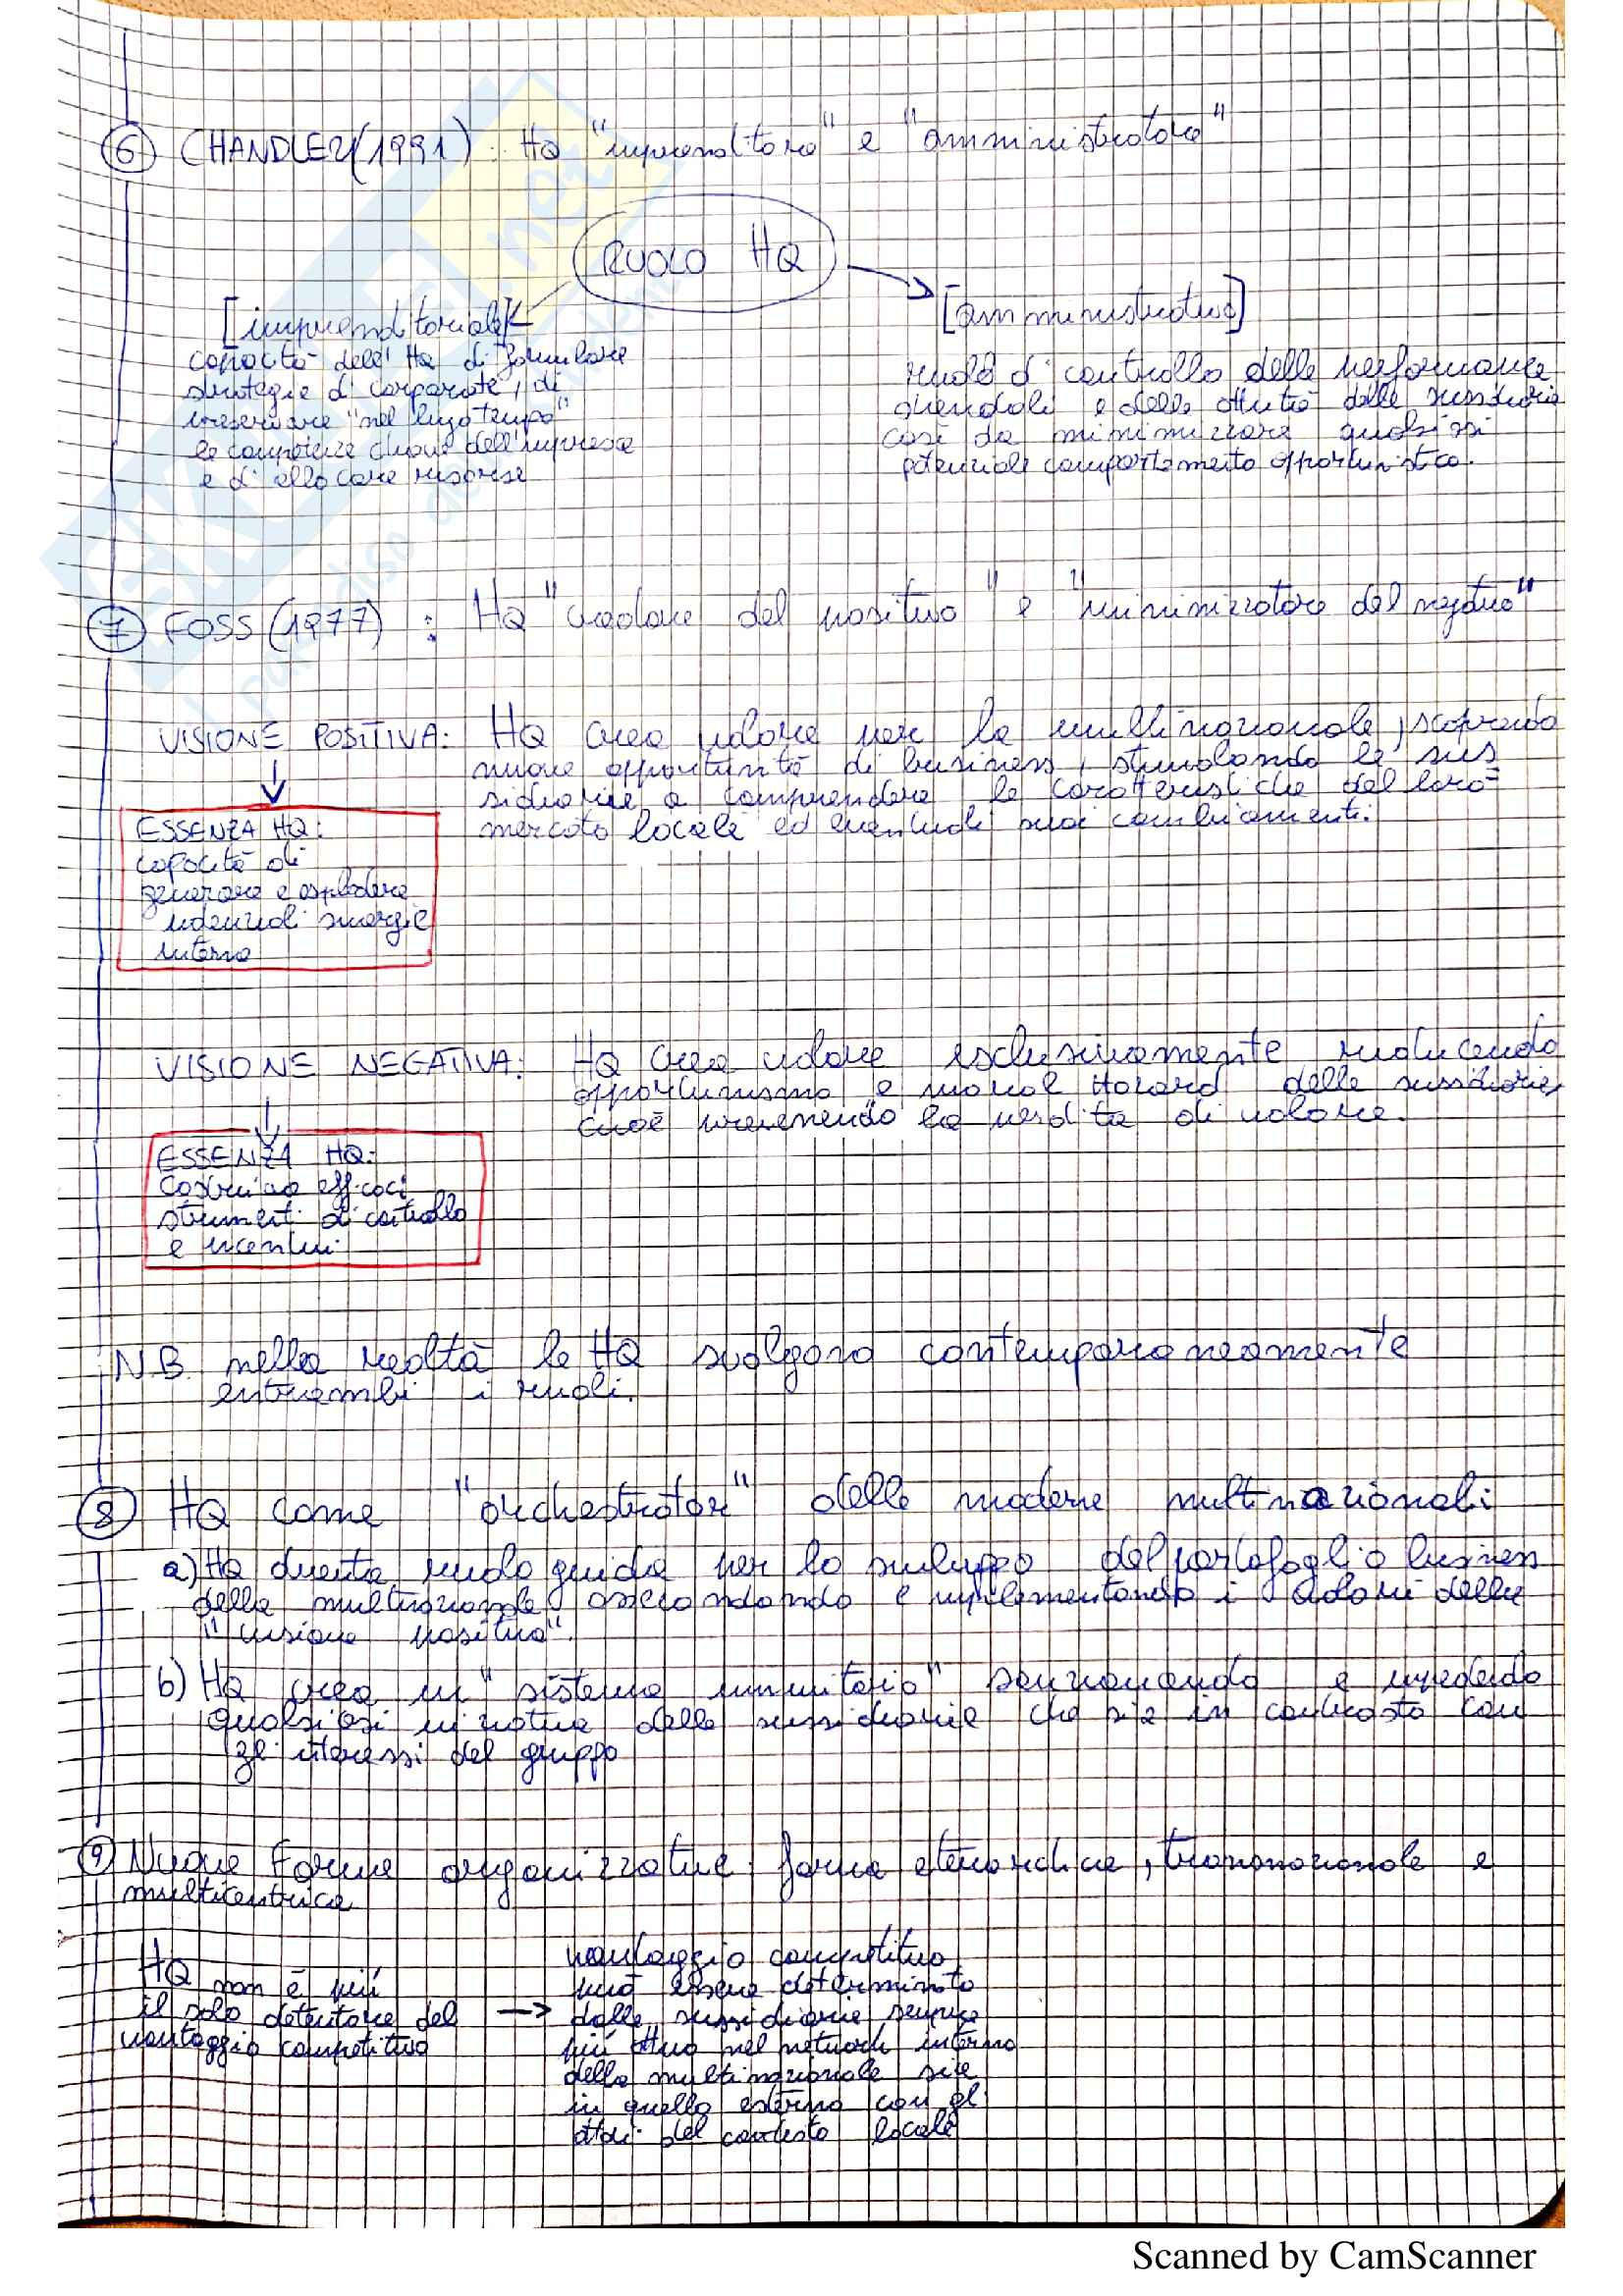 6 CHANDLER (1991): HQ "imprenditore" e "amministratore"
RUOLO HQ
[imprenditoriale]
capacità dell'HQ di formulare
strategie di corporate, di
preservare "nel lugo tempo"
le competenze chiave dell'impresa
e di allocare risorse
[amministrativo]
ruolo di controllo delle performance
aziendali e delle attività delle sussidiarie
così da minimizzare qualsiasi
potenziale comportamento opportunistico.
7 FOSS (1977): HQ "creatore del positivo" e "minimizzatore del negativo"
VISIONE POSITIVA: HQ crea valore per la multinazionale, scoprendo
nuove opportunità di business, stimolando le sus
sidiarie a comprendere le caratteristiche del loro
mercato locale ed eventuali suoi cambiamenti.
ESSENZA HQ:
capacità di
generare e esplodere
potenziali sinergie
interne
VISIONE NEGATIVA: HQ crea valore esclusivamente riducendo
opportunismo e moral Hazard delle sussidiarie,
cioè prevenendo la perdita di valore.
ESSENZA HQ:
costruire efficaci
strumenti di controllo
e incentivi
N.B. nella realtà le HQ svolgono contemporaneamente
entrambi i ruoli.
8 HQ come "orchestratori" delle moderne multinazionali
a) HQ diventa ruolo guida per lo sviluppo del portafoglio business
della multinazionale, assecondando e implementando i valori della
"visione positiva".
b) HQ crea un "sistema immunitario" e impedendo
qualsiasi iniziativa delle sussidiarie che sia in contrasto con
gli interessi del gruppo
9 Nuove forme organizzative: forma eterarchica, transnazionale e
multicentrica
HQ non è più
il solo detentore del
vantaggio competitivo
→ vantaggio competitivo
può essere determinato
dalle sussidiarie sempre
più attive nel network interno
della multinazionale sia
in quello esterno con gli
attori del contesto locale
SKUOLA.net
il paradiso dello studente
Scanned by CamScanner